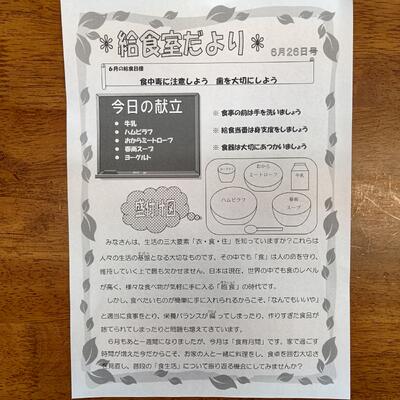 給食室だより
6月26日号
6月の給食目標
食中毒に注意しよう 歯を大切にしよう
今日の献立
● 牛乳
● ハムピラフ
● おからミートローフ
● 春雨スープ
● ヨーグルト
※ 食事の前は手を洗いましょう
※ 給食当番は身支度をしましょう
※ 食器は大切にあつかいましょう
盛切り図
ヨーグルト
おから
ミートローフ
牛乳
ハムピラフ
春雨
スープ
みなさんは、生活の三大要素「衣・食・住」を知っていますか？これらは
人々の生活の基盤となる大切なものです。その中でも「食」は人の命を守り、
維持していく上で最も欠かせません。日本は現在、世界の中でも食のレベル
が高く、様々な食べ物が気軽に手に入る「飽食」の時代です。
しかし、食べたいものが簡単に手に入れられるからこそ、「なんでもいいや」
と適当に食事をとり、栄養バランスが偏ってしまったり、作りすぎた食品が
捨てられてしまったりと問題も増えてきています。
6月もあと一週間になりましたが、今月は「食育月間」です。家で過ごす
時間が増えた今だからこそ、お家の人と一緒に料理をし、食卓を囲む大切さ
を見直し、普段の「食生活」について振り返る機会にしてみませんか？